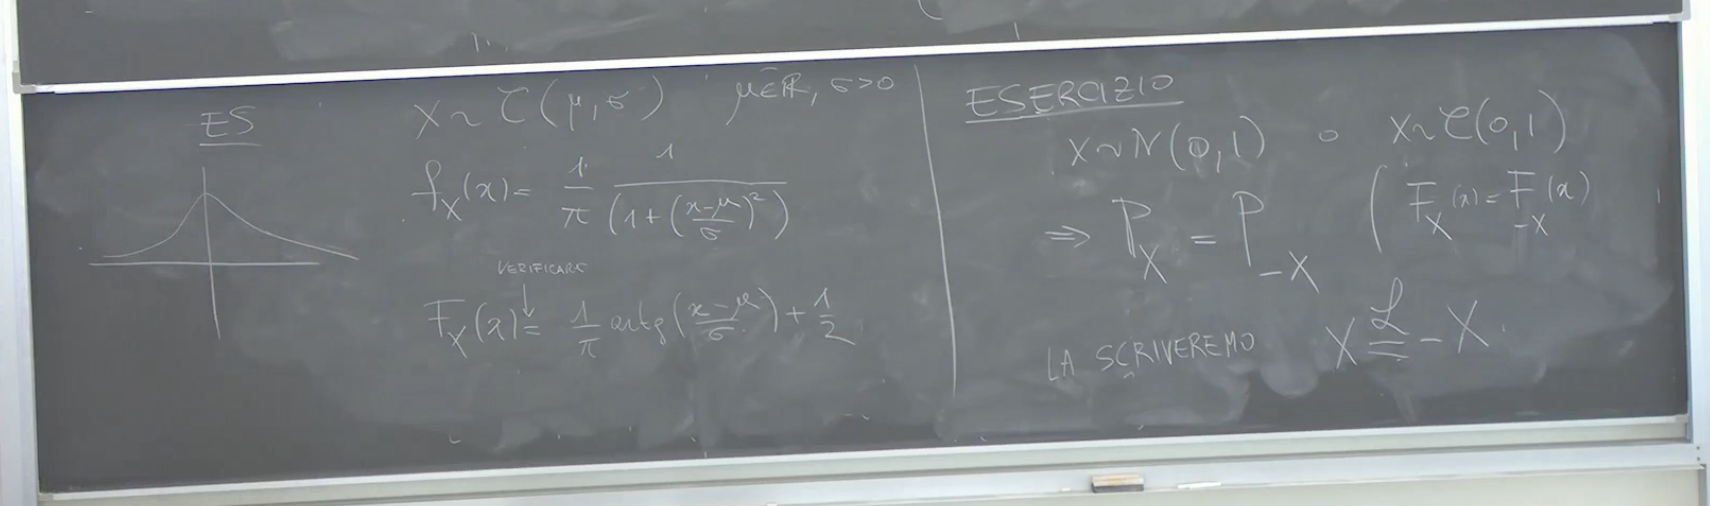 ES
X ~ C(μ, σ) μ∈ℝ, σ>0
f_X(x) = 1/π 1/(1+((x-μ)/σ)²)
VERIFICARE
F_X(x) = 1/π artg((x-μ)/σ) + 1/2
ESERCIZIO
X ~ N(0,1) o X ~ C(0,1)
⇒ P_X = P_{-X} ( F_X(x) = F_{-X}(x)
LA SCRIVEREMO X =^ℒ -X